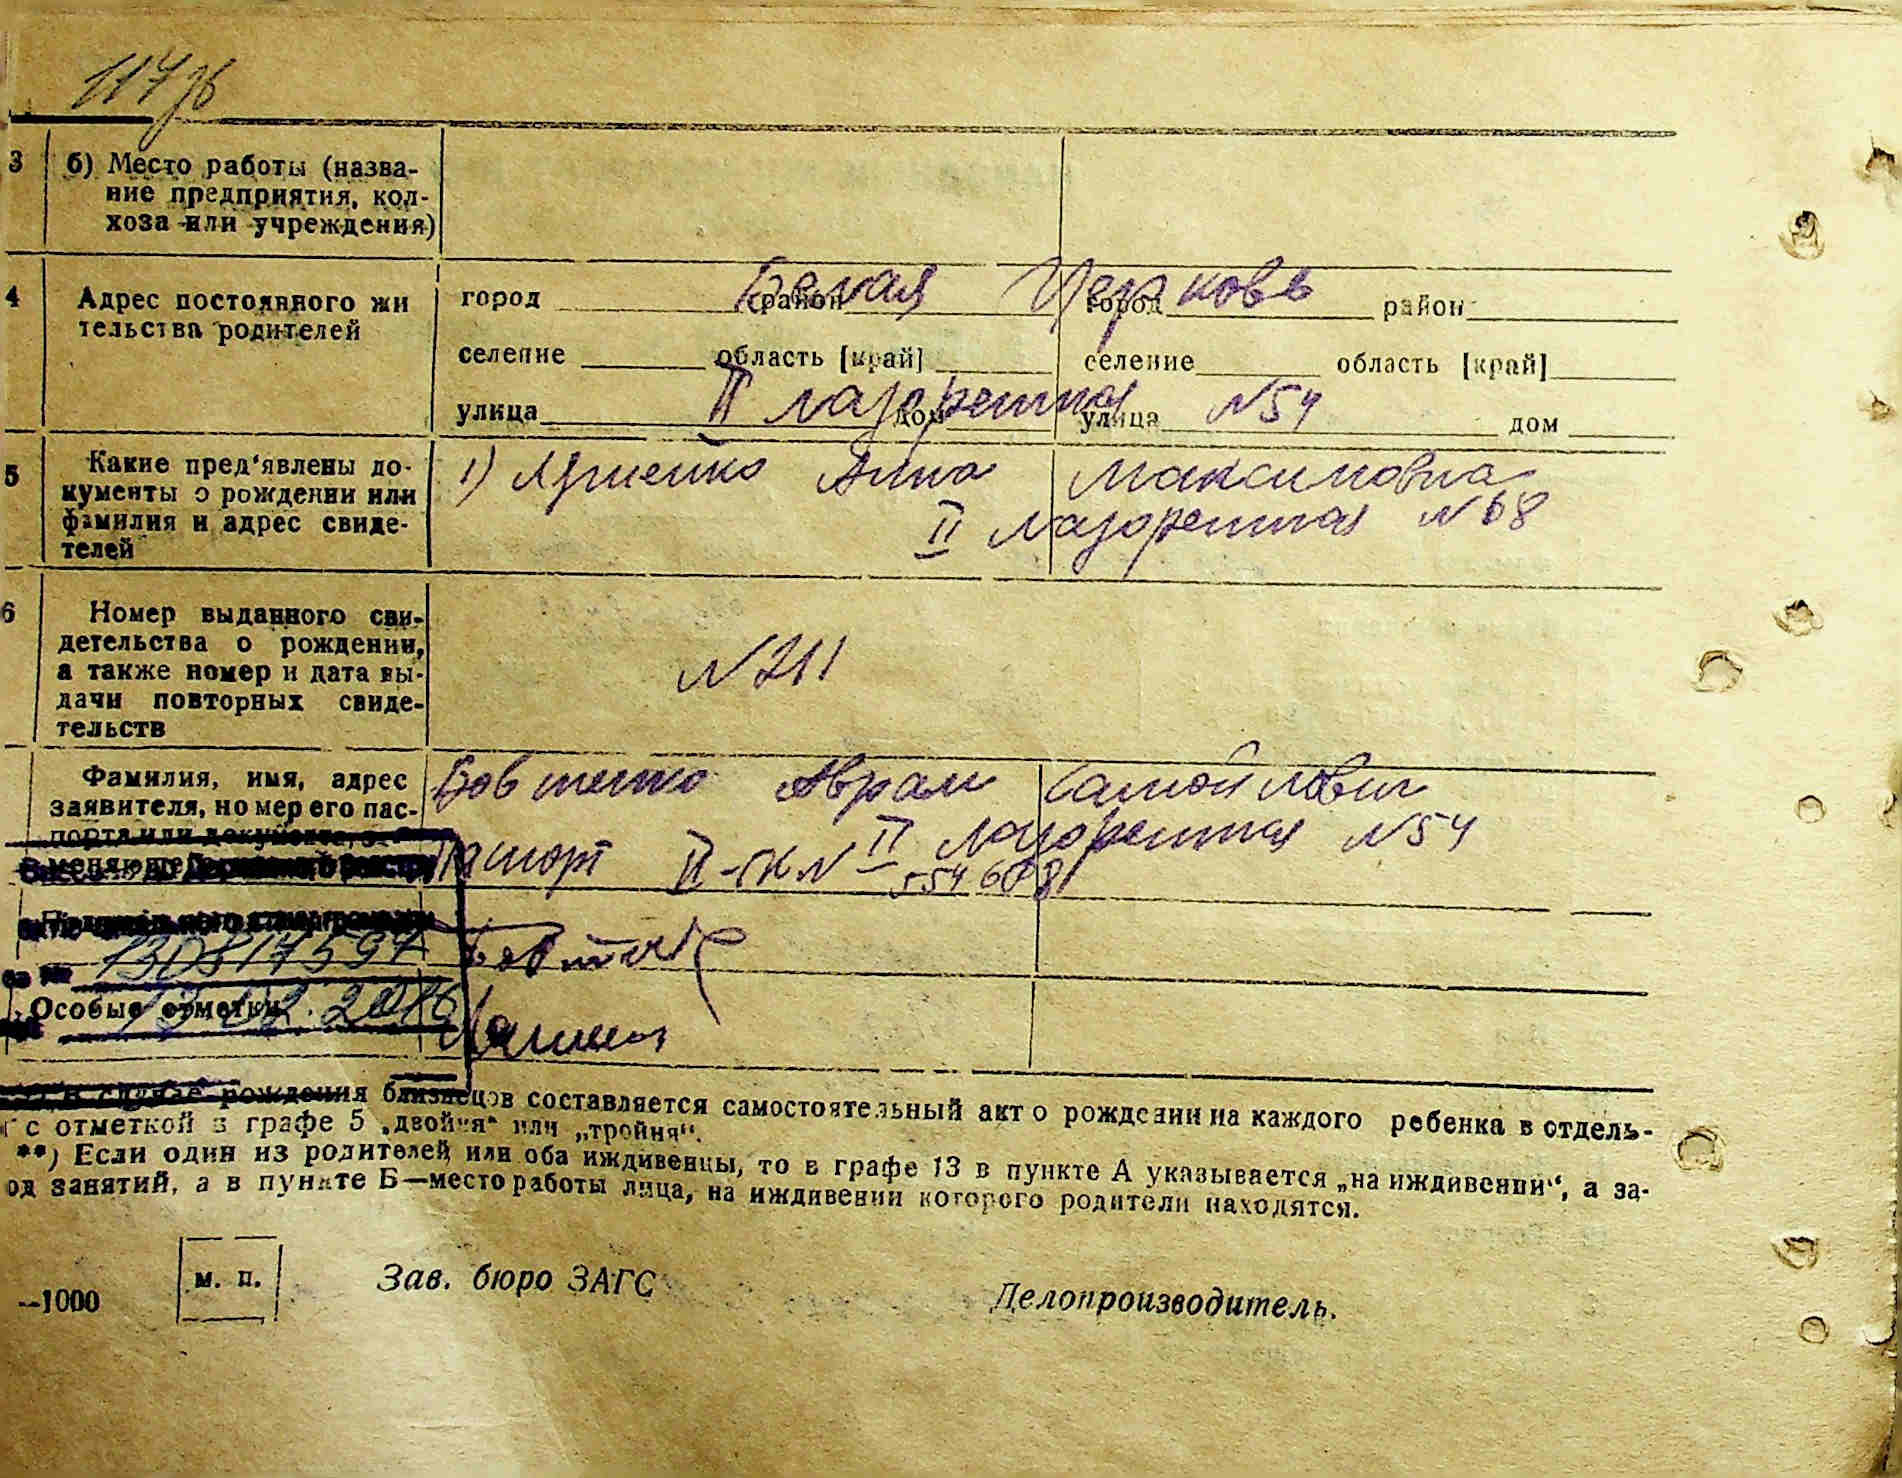 117 зв
3 б) Место работы (назва-
ние предприятия, кол-
хоза или учреждения)
4 Адрес постоянного жи
тельства родителей
город Белая район Церковь город район
селение область [край] селение область [край]
улица II Лазаретная дом улица N54 дом
5 Какие пред'явлены до-
кументы о рождении или
фамилия и адрес свиде-
телей
1) Анна Максимовна
II Лазаретная N 68
6 Номер выданного сви-
детельства о рождении,
а также номер и дата вы-
дачи повторных свиде-
тельств
N 211
Фамилия, имя, адрес
заявителя, номер его пас-
порта или документа,
меняющего
Бовтенко Аврам Самойлович
II Лазаретная N54
Паспорт II-ГК N 554608
1308174594
Особые отметки
13.02.2016
*) В случае рождения близнецов составляется самостоятельный акт о рождении на каждого ребенка в отдель-
с отметкой в графе 5 „двойня“ или „тройня“.
**) Если один из родителей или оба иждивенцы, то в графе 13 в пункте А указывается „на иждивении“, а за-
од занятий, а в пункте Б—место работы лица, на иждивении которого родители находятся.
м. п.
Зав. бюро ЗАГС
—1000
Делопроизводитель.